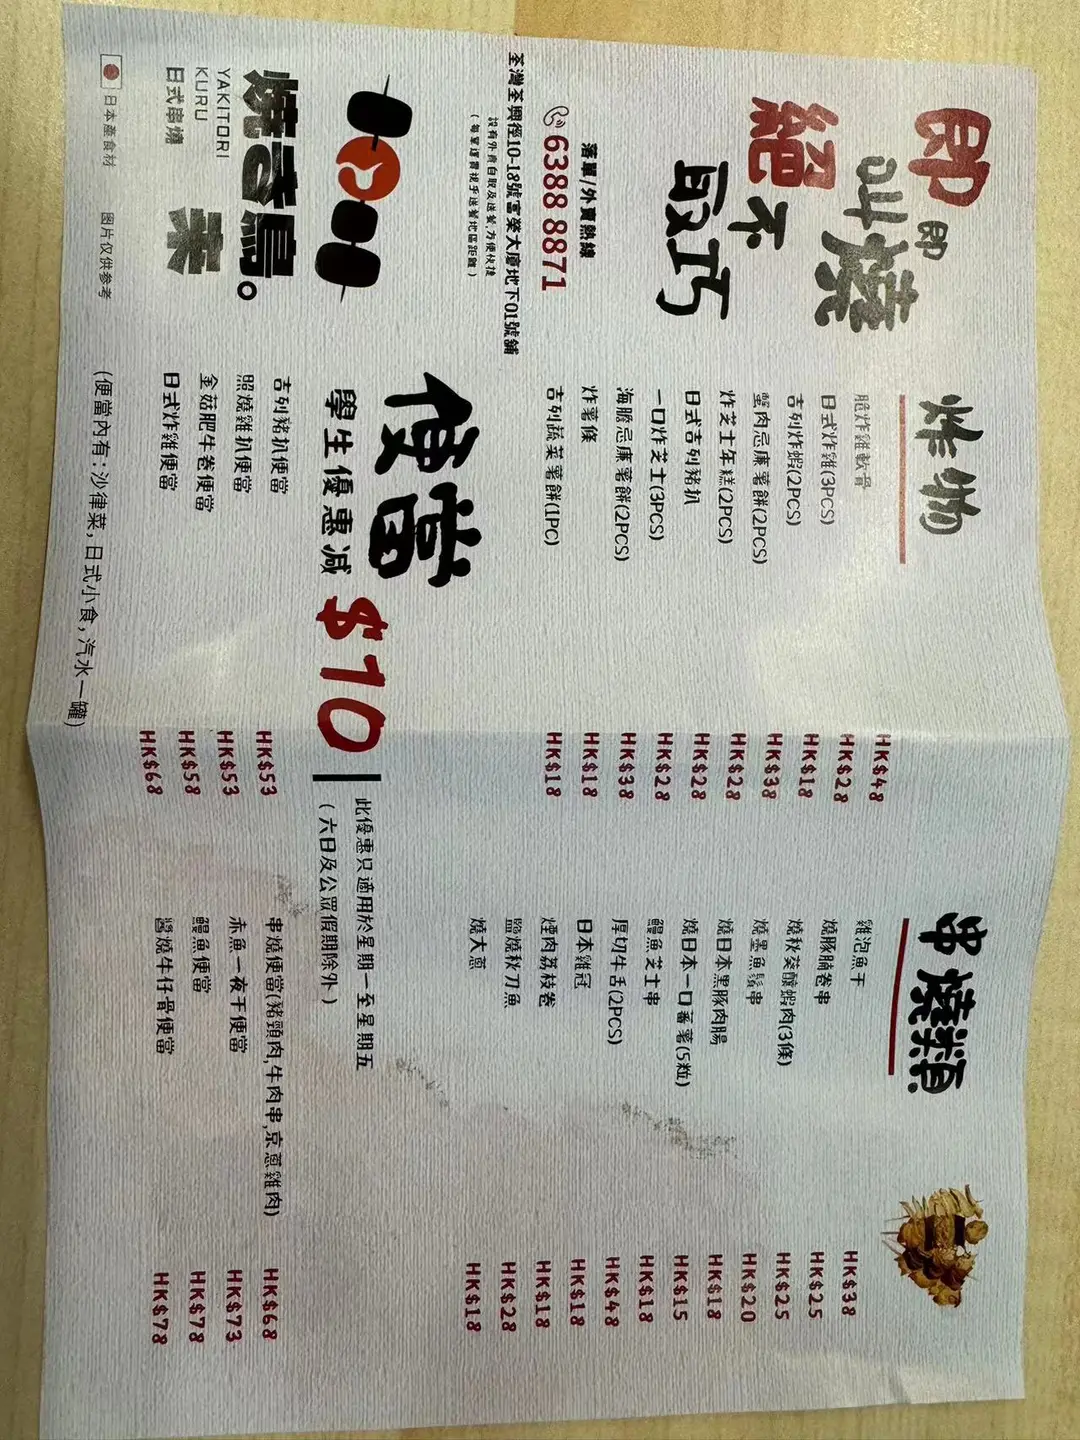 即叫即燒
絕不取巧
落單/外賣熱線
6388 8871
荃灣荃興徑10-18號富榮大廈地下01號舖
設有外賣自取及送餐,方便快捷
(每單運費視乎送餐地區距離)
燒き鳥。
来
YAKITORI
KURU
日式串燒
日本產食材
图片仅供参考
炸物
脆炸雞軟骨 HK$48
日式炸雞(3PCS) HK$28
吉列炸蝦(2PCS) HK$18
蟹肉忌廉薯餅(2PCS) HK$38
炸芝士年糕(2PCS) HK$28
日式吉列豬扒 HK$28
一口炸芝士(3PCS) HK$28
海膽忌廉薯餅(2PCS) HK$38
炸薯條 HK$18
吉列蔬菜薯餅(1PC) HK$18
串燒類
雞泡魚干 HK$38
燒豚腩卷串 HK$25
燒秋葵釀蝦肉(3條) HK$25
燒墨魚鬚串 HK$20
燒日本黑豚肉腸 HK$18
燒日本一口蕃薯(5粒) HK$15
鰻魚芝士串 HK$18
厚切牛舌(2PCS) HK$48
日本雞冠 HK$18
煙肉荔枝卷 HK$18
鹽燒秋刀魚 HK$28
燒大蔥 HK$18
便當
學生優惠減 $10
此優惠只適用於星期一至星期五
(六日及公眾假期除外)
吉列豬扒便當 HK$53
照燒雞扒便當 HK$53
金菇肥牛卷便當 HK$58
日式炸雞便當 HK$68
串燒便當(豬頸肉,牛肉串,京蔥雞肉) HK$68
赤魚一夜干便當 HK$73
鰻魚便當 HK$78
醬燒牛仔骨便當 HK$78
(便當內有:沙律菜,日式小食,汽水一罐)